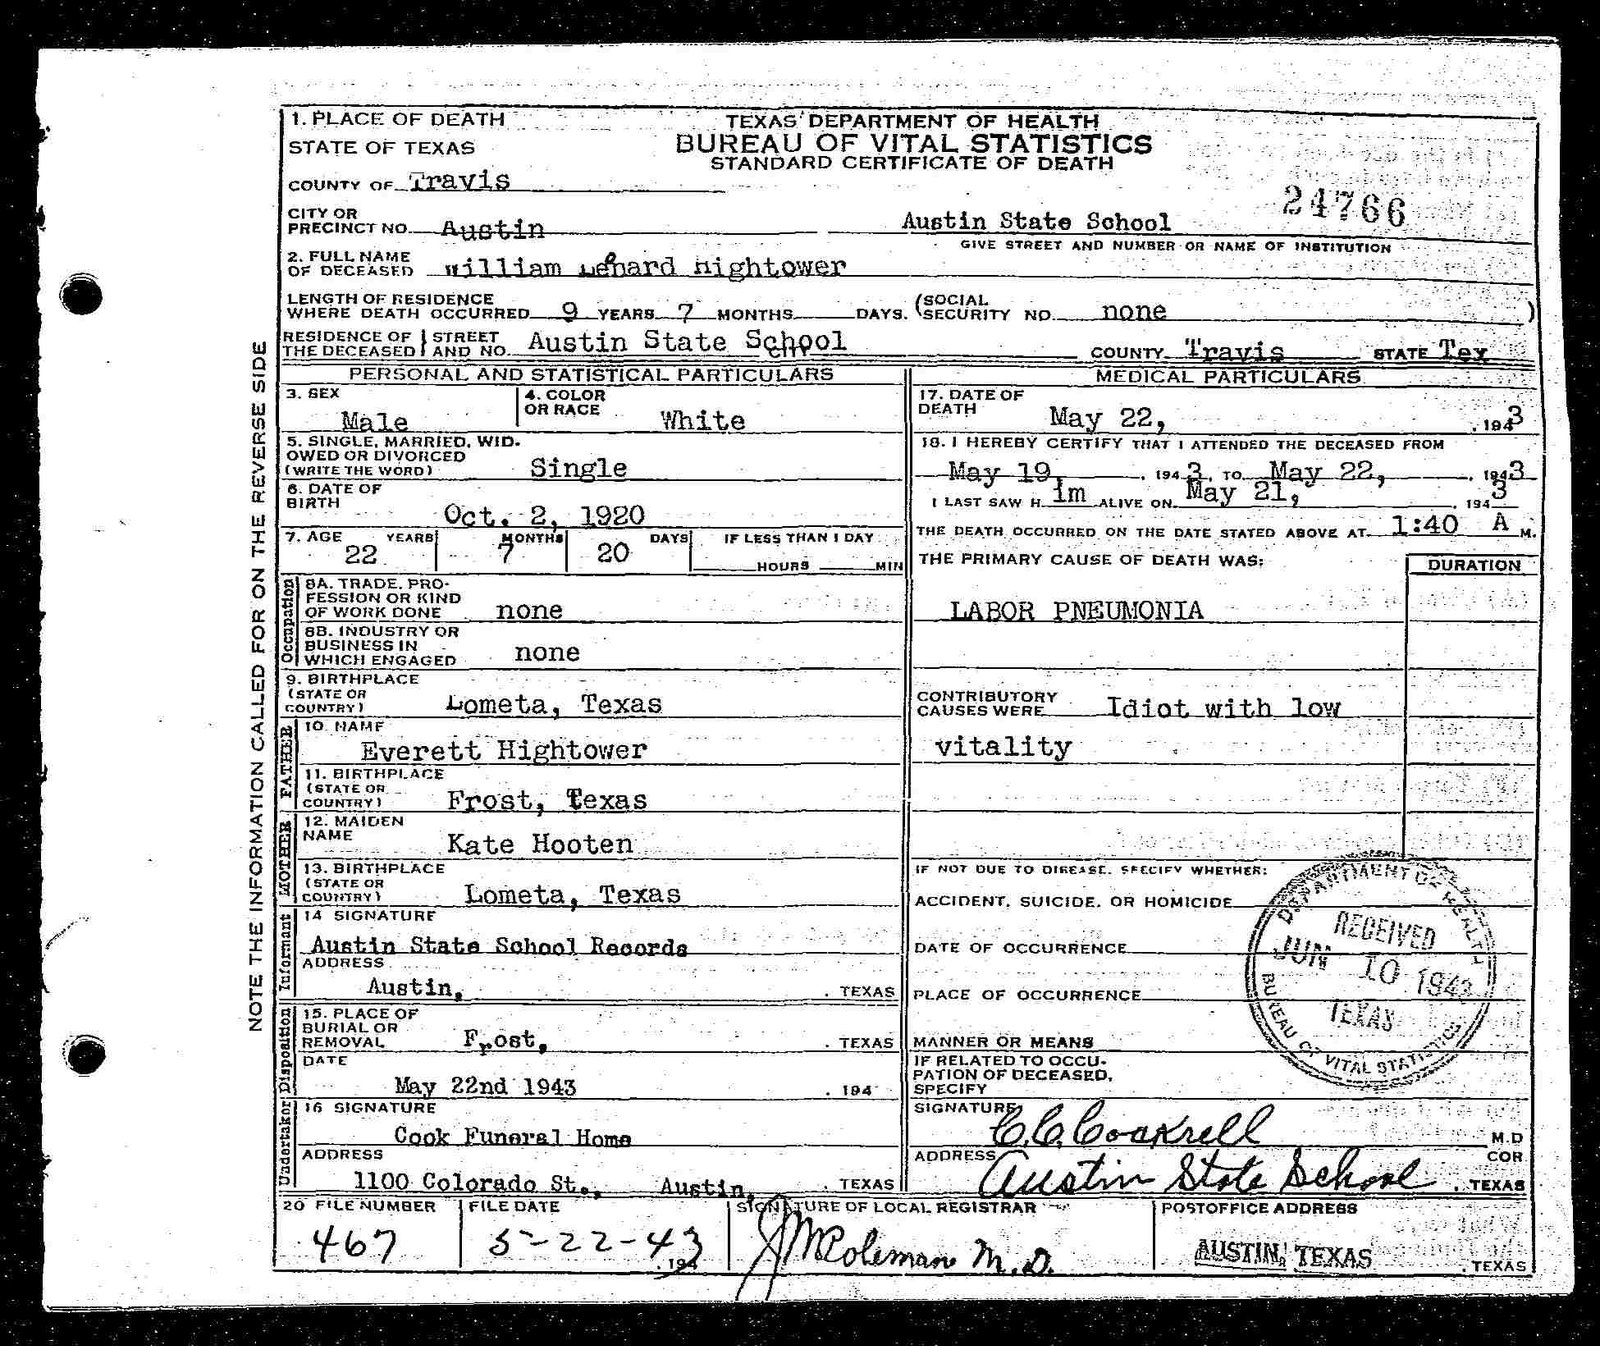 TEXAS DEPARTMENT OF HEALTH
BUREAU OF VITAL STATISTICS
STANDARD CERTIFICATE OF DEATH
24766
1. PLACE OF DEATH
STATE OF TEXAS
COUNTY OF Travis
CITY OR
PRECINCT NO. Austin Austin State School
GIVE STREET AND NUMBER OR NAME OF INSTITUTION
2. FULL NAME
OF DECEASED William Lenard Hightower
LENGTH OF RESIDENCE
WHERE DEATH OCCURRED 9 YEARS 7 MONTHS DAYS. (SOCIAL SECURITY NO. none )
RESIDENCE OF THE DECEASED STREET AND NO. Austin State School
CITY
COUNTY Travis STATE Tex
PERSONAL AND STATISTICAL PARTICULARS
3. SEX
Male
4. COLOR
OR RACE White
5. SINGLE, MARRIED, WID-
OWED OR DIVORCED
(WRITE THE WORD) Single
6. DATE OF
BIRTH Oct. 2, 1920
7. AGE YEARS MONTHS DAYS IF LESS THAN 1 DAY
22 7 20 HOURS MIN
Occupation
8A. TRADE, PRO-
FESSION OR KIND
OF WORK DONE none
8B. INDUSTRY OR
BUSINESS IN
WHICH ENGAGED none
9. BIRTHPLACE
(STATE OR
COUNTRY) Lometa, Texas
FATHER
10. NAME
Everett Hightower
11. BIRTHPLACE
(STATE OR
COUNTRY) Frost, Texas
MOTHER
12. MAIDEN
NAME Kate Hooten
13. BIRTHPLACE
(STATE OR
COUNTRY) Lometa, Texas
Informant
14 SIGNATURE
Austin State School Records
ADDRESS
Austin, . TEXAS
Disposition
15. PLACE OF
BURIAL OR
REMOVAL Frost, . TEXAS
DATE
May 22nd 1943 . 194
Undertaker
16 SIGNATURE
Cook Funeral Home
ADDRESS
1100 Colorado St., Austin, . TEXAS
MEDICAL PARTICULARS
17. DATE OF
DEATH May 22, . 1943
18. I HEREBY CERTIFY THAT I ATTENDED THE DECEASED FROM
May 19, . 1943, TO May 22, . 1943
I LAST SAW H im ALIVE ON May 21, 1943
THE DEATH OCCURRED ON THE DATE STATED ABOVE AT 1:40 A M.
THE PRIMARY CAUSE OF DEATH WAS: DURATION
LABOR PNEUMONIA
CONTRIBUTORY
CAUSES WERE Idiot with low
vitality
IF NOT DUE TO DISEASE, SPECIFY WHETHER:
ACCIDENT, SUICIDE, OR HOMICIDE
DATE OF OCCURRENCE
PLACE OF OCCURRENCE
MANNER OR MEANS
IF RELATED TO OCCU-
PATION OF DECEASED,
SPECIFY
SIGNATURE C.C. Cockrell M.D
ADDRESS COR
Austin State School . TEXAS
DEPARTMENT OF HEALTH
RECEIVED
JUN 10 1943
TEXAS
BUREAU OF VITAL STATISTICS
20 FILE NUMBER
467
FILE DATE
5-22-43
. 194
SIGNATURE OF LOCAL REGISTRAR
J M Coleman M.D.
POSTOFFICE ADDRESS
AUSTIN, TEXAS . TEXAS
NOTE THE INFORMATION CALLED FOR ON THE REVERSE SIDE